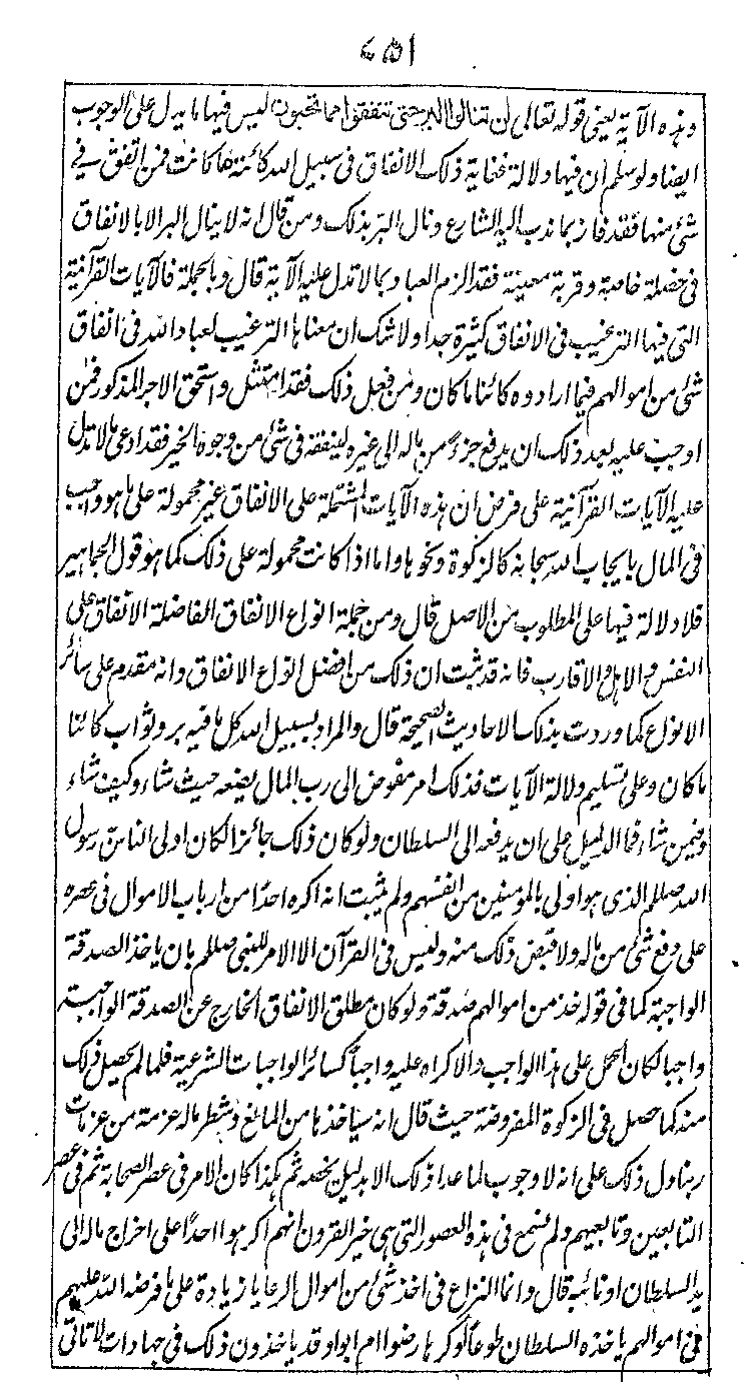 ٤٥١
وهذه الآية يعني قوله تعالى لن تنالوا البر حتى تنفقوا مما تحبون ليس فيها ما يدل على الوجوب
ايضا ولو سلم ان فيها دلالة فغاية ذلك الانفاق في سبيل الله كائنة ما كانت فمن انفق في
شئ منها فقد فاز بما ندب اليه الشارع ونال البر بذلك ومن قال انه لا ينال البر الا بالانفاق
في خصلة خاصة وقربة معينة فقد الزم العباد بما لا تدل عليه الآية قال وبالجملة فالآيات القرآنية
التي فيها الترغيب في الانفاق كثيرة جدا ولا شك ان معناها الترغيب لعباد الله في انفاق
شئ من اموالهم فيما ارادوه كائنا ما كان ومن فعل ذلك فقد امتثل واستحق الاجر المذكور فمن
اوجب عليه بعد ذلك ان يدفع جزءً من ماله الى غيره لينفقه في شئ من وجوه الخير فقد ادعى ما لا تدل
عليه الآيات القرآنية على فرض ان هذه الآيات المشتملة على الانفاق غير محمولة على ما هو واجب
في المال بايجاب الله سبحانه كالزكوة ونحوها واما اذا كانت محمولة على ذلك كما هو قول الجماهير
فلا دلالة فيها على المطلوب من الاصل قال ومن جملة انواع الانفاق الفاضلة الانفاق على
النفس والاهل والاقارب فانه قد ثبت ان ذلك من افضل انواع الانفاق وانه مقدم على سائر
الانواع كما وردت بذلك الاحاديث الصحيحة قال والمراد بسبيل الله كل ما فيه بر وثواب كائنا
ما كان وعلى تسليم دلالة الآيات فذلك امر مفوض الى رب المال يضعه حيث شاء وكيف شاء
وفيمن شاء فما الدليل على ان يدفعه الى السلطان ولو كان ذلك جائزا لكان اولى الناس رسول
الله صللم الذي هو اولى بالمومنين من انفسهم ولم يثبت انه اكره احدًا من ارباب الاموال في عصره
على دفع شئ من ماله ولا قبض ذلك منه وليس في القرآن الا الامر للنبي صللم بان ياخذ الصدقة
الواجبة كما في قوله خذ من اموالهم صدقة ولو كان مطلق الانفاق الخارج عن الصدقة الواجبة
واجبا لكان الحمل على هذا الواجب والاكراه عليه واجباً كسائر الواجبات الشرعية فلما لم يحصل ذلك
منه كما حصل في الزكوة المفروضة حيث قال انه سياخذها من المانع وشطر ماله عزمة من عزمات
ربنا دل ذلك على انه لا وجوب لما عدا ذلك الا بدليل يخصه ثم هكذا كان الامر في عصر الصحابة ثم في عصر
التابعين وتابعيهم ولم نسمع في هذه العصور التي هي خير القرون انهم اكرهوا احدًا على اخراج ماله الى
يد السلطان او نائبه قال وانما النزاع في اخذ شئ من اموال الرعايا زيادة على ما فرضه الله عليهم
في اموالهم ياخذه السلطان طوعاً او كرها رضوا ام ابوا وقد ياخذون ذلك في جهادات لا تاتي